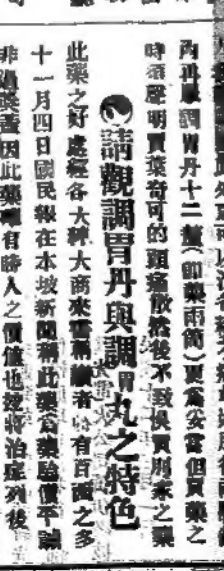 內再服調胃丹十二盞(即藥兩筒)更為妥當但買藥之
時須聲明買葉奇可的頭痛散然後不致悞買別家之藥
請觀調胃丹與調胃丸之特色
此藥之好處經各大紳大商來函稱讚者有百函之多
十一月四日國民報在本坡新聞稱此藥為藥驗價平誠
非過獎蓋因此藥確有勝人之價值也茲將治症列後